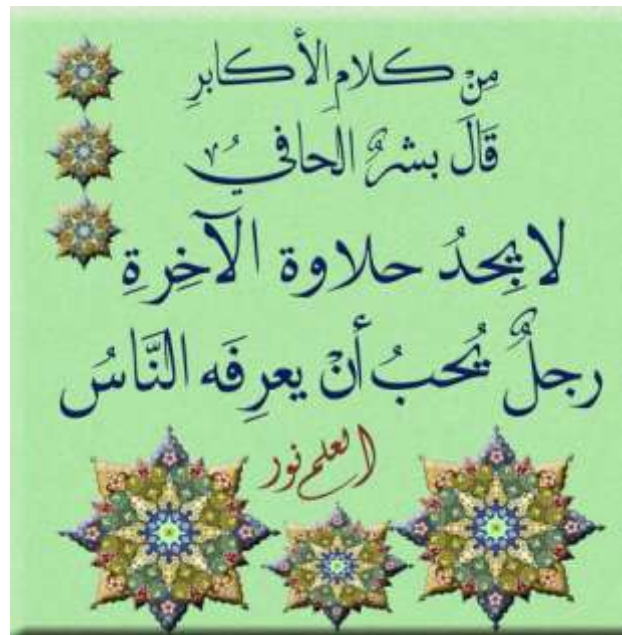 مِنْ كلامِ الأكابرِ
قَالَ بشرٌ الحافيُ
لا يجِدُ حلاوة الآخِرةِ
رجلٌ يُحبُ أنْ يعرِفَه النَّاسُ
العلم نور